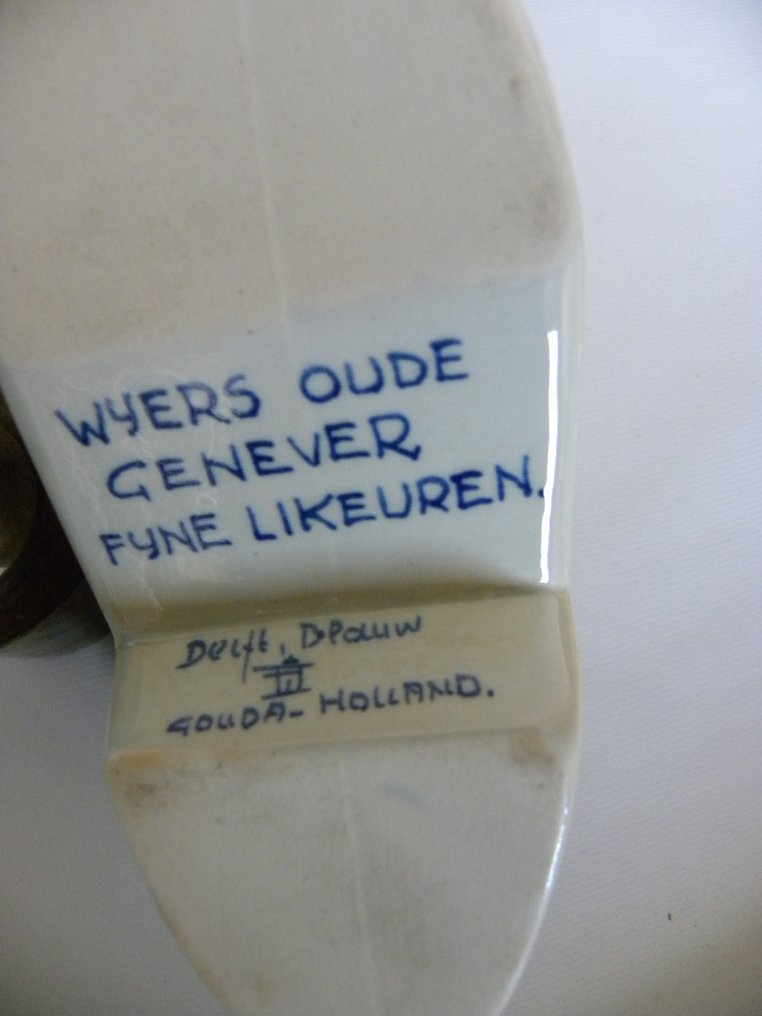 WYERS OUDE
GENEVER
FYNE LIKEUREN.
Delft, Blauw
GOUDA- HOLLAND.